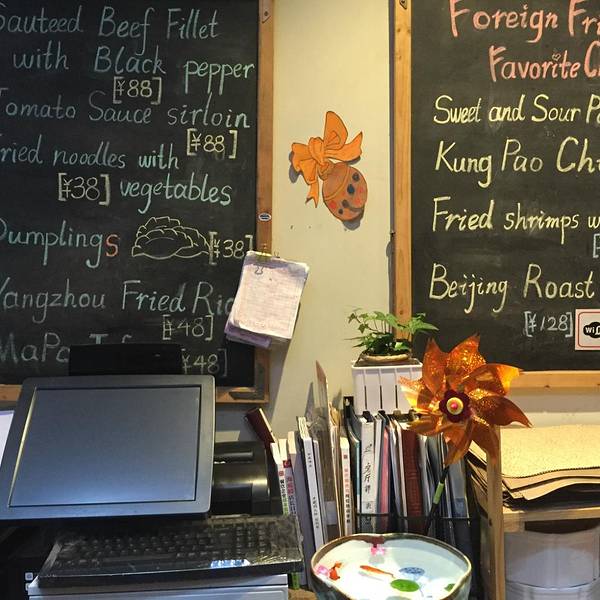 Sauteed Beef Fillet
with Black pepper
[¥88]
Tomato Sauce sirloin
[¥88]
Fried noodles with
[¥38] vegetables
Dumplings [¥38]
Yangzhou Fried Ric
[¥48]
MaPo
[¥48]
Foreign Fri
Favorite C
Sweet and Sour Po
Kung Pao Chi
Fried shrimps w
Beijing Roast
[¥128]
Wi